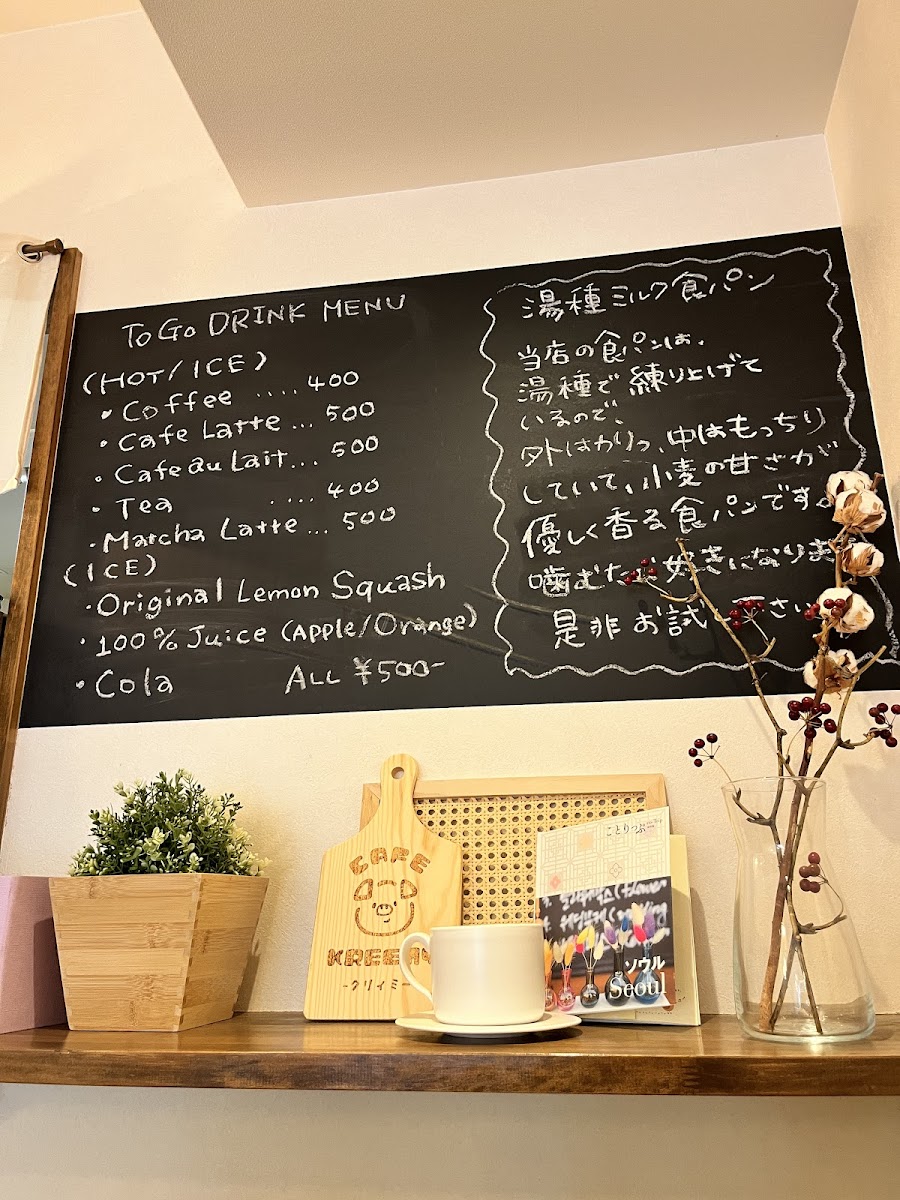 To Go DRINK MENU
(HOT/ICE)
・Coffee .... 400
・Cafe Latte ... 500
・Cafe au Lait ... 500
・Tea .... 400
・Matcha Latte ... 500
(ICE)
・Original Lemon Squash
・100% Juice (Apple/Orange)
・Cola ALL ¥500-
湯種ミルク食パン
当店の食パンは、
湯種で練り上げて
いるので、
外はかりっ、中はもっちり
していて、小麦の甘さが
優しく香る食パンです。
噛むたび好きになりま
是非お試し下さい
CAFE
KREEMY
-クリィミー
ことりっぷ
ソウル
Seoul